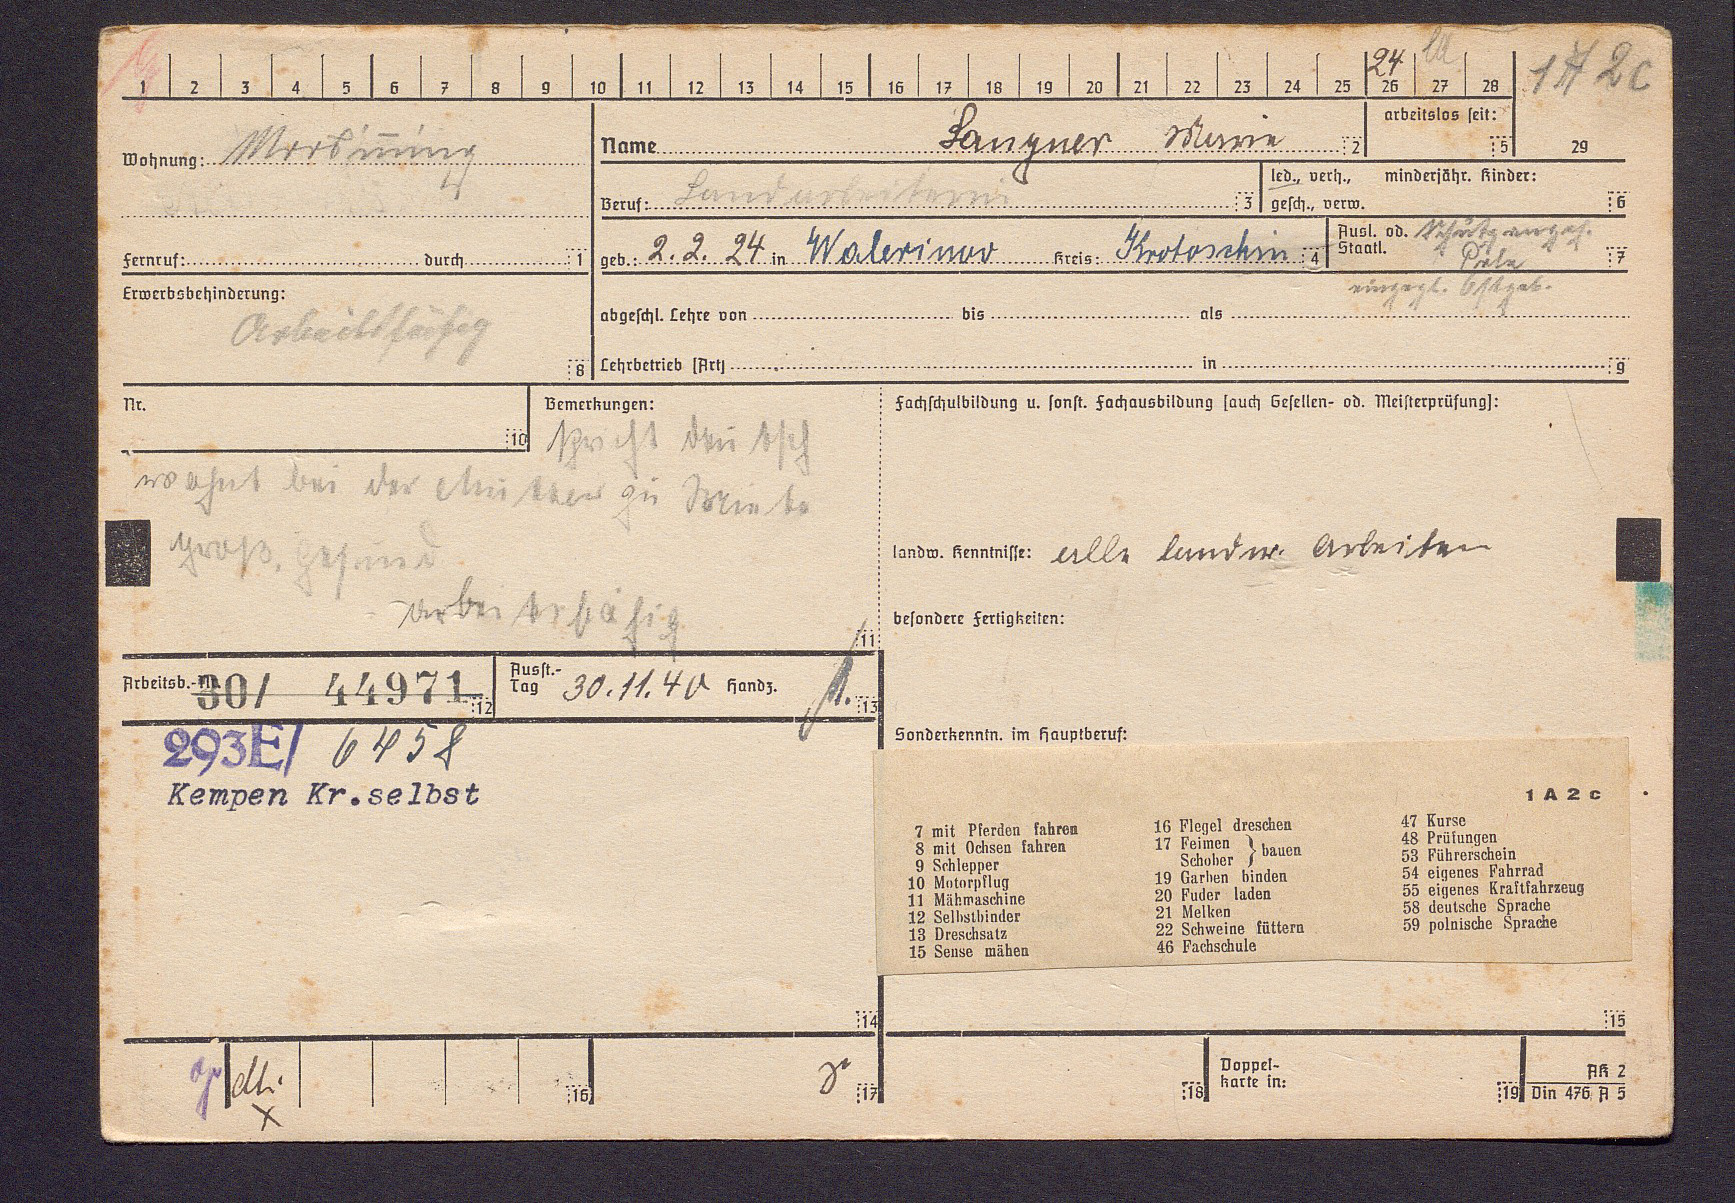 1 2 3 4 5 6 7 8 9 10 11 12 13 14 15 16 17 18 19 20 21 22 23 24 25 26 27 28
24
1 A 2c
Wohnung:
Name Langner Marie 2
arbeitslos seit: 5
29
Beruf: Landarbeiterin 3
led., verh., minderjähr. Kinder:
gesch., verw. 6
Fernruf: durch 1
geb.: 2.2.24 in Kreis: Krotoschin 4
Ausl. od. Schutzangeh.
Staatl. Pole 7
eingegl. Ostgeb.
Erwerbsbehinderung:
Arbeitsfähig
8
abgeschl. Lehre von bis als
Lehrbetrieb [Art] in 9
Nr. 10
Bemerkungen:
spricht deutsch
wohnt bei der Mutter zu Miete
groß, gesund
arbeitsfähig
11
Fachschulbildung u. sonst. Fachausbildung [auch Gesellen- od. Meisterprüfung]:
landw. Kenntnisse: alle landw. Arbeiten
besondere Fertigkeiten:
Arbeitsb.-Nr. 30/ 44971 12
Ausst.-
Tag 30.11.40 Handz. 13
293E/ 6458
Kempen Kr.selbst
Sonderkenntn. im Hauptberuf:
1 A 2 c
7 mit Pferden fahren
8 mit Ochsen fahren
9 Schlepper
10 Motorpflug
11 Mähmaschine
12 Selbstbinder
13 Dreschsatz
15 Sense mähen
16 Flegel dreschen
17 Feimen } bauen
Schober
19 Garben binden
20 Fuder laden
21 Melken
22 Schweine füttern
46 Fachschule
47 Kurse
48 Prüfungen
53 Führerschein
54 eigenes Fahrrad
55 eigenes Kraftfahrzeug
58 deutsche Sprache
59 polnische Sprache
14
15
16
17
18
Doppel-
karte in: 19
AK 2
Din 476 A 5